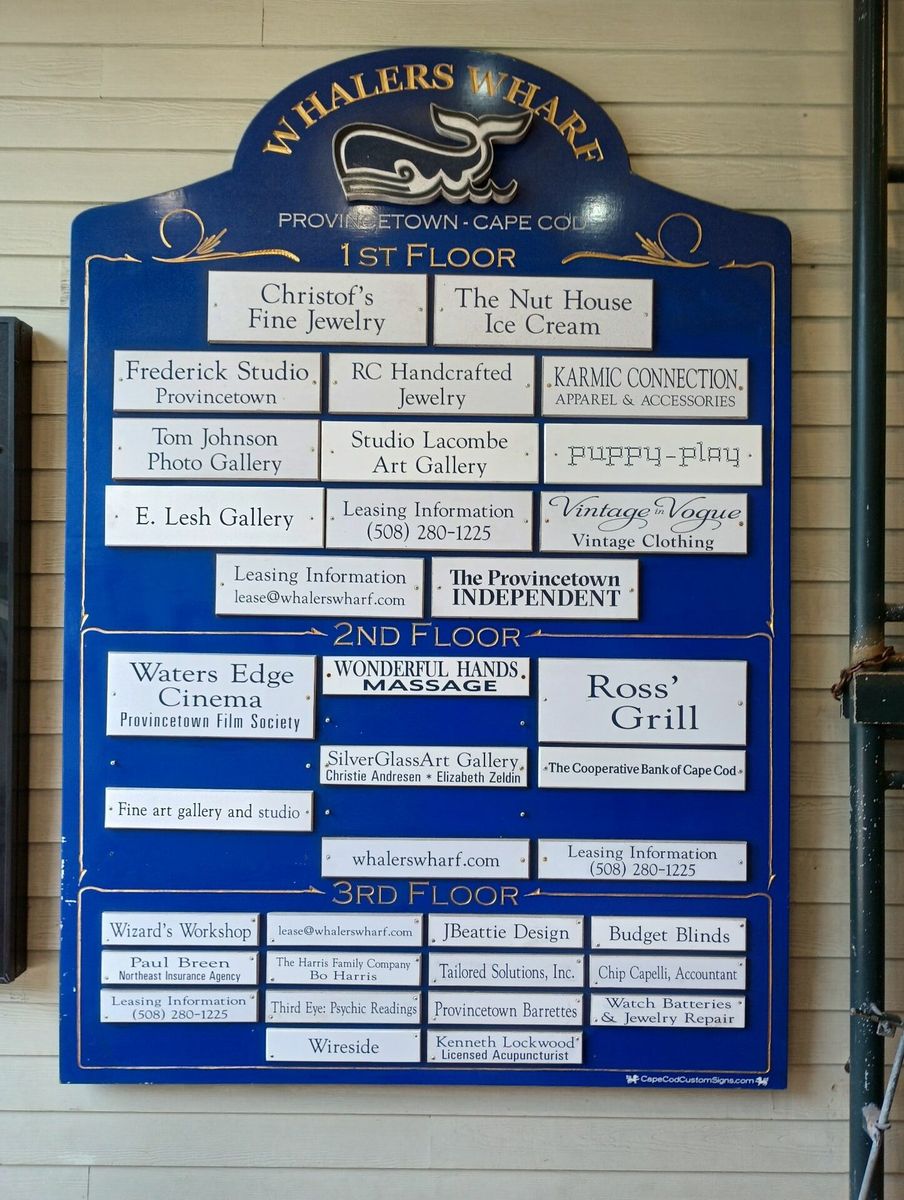 WHALERS WHARF
PROVINCETOWN - CAPE COD
1ST FLOOR
Christof's
Fine Jewelry
The Nut House
Ice Cream
Frederick Studio
Provincetown
RC Handcrafted
Jewelry
KARMIC CONNECTION
APPAREL & ACCESSORIES
Tom Johnson
Photo Gallery
Studio Lacombe
Art Gallery
puppy-play
E. Lesh Gallery
Leasing Information
(508) 280-1225
Vintage in Vogue
Vintage Clothing
Leasing Information
lease@whalerswharf.com
The Provincetown
INDEPENDENT
2ND FLOOR
Waters Edge
Cinema
Provincetown Film Society
WONDERFUL HANDS
MASSAGE
Ross'
Grill
SilverGlassArt Gallery
Christie Andresen * Elizabeth Zeldin
The Cooperative Bank of Cape Cod
Fine art gallery and studio
whalerswharf.com
Leasing Information
(508) 280-1225
3RD FLOOR
Wizard's Workshop
lease@whalerswharf.com
JBeattie Design
Budget Blinds
Paul Breen
Northeast Insurance Agency
The Harris Family Company
Bo Harris
Tailored Solutions, Inc.
Chip Capelli, Accountant
Leasing Information
(508) 280-1225
Third Eye: Psychic Readings
Provincetown Barrettes
Watch Batteries
& Jewelry Repair
Wireside
Kenneth Lockwood
Licensed Acupuncturist
CapeCodCustomSigns.com